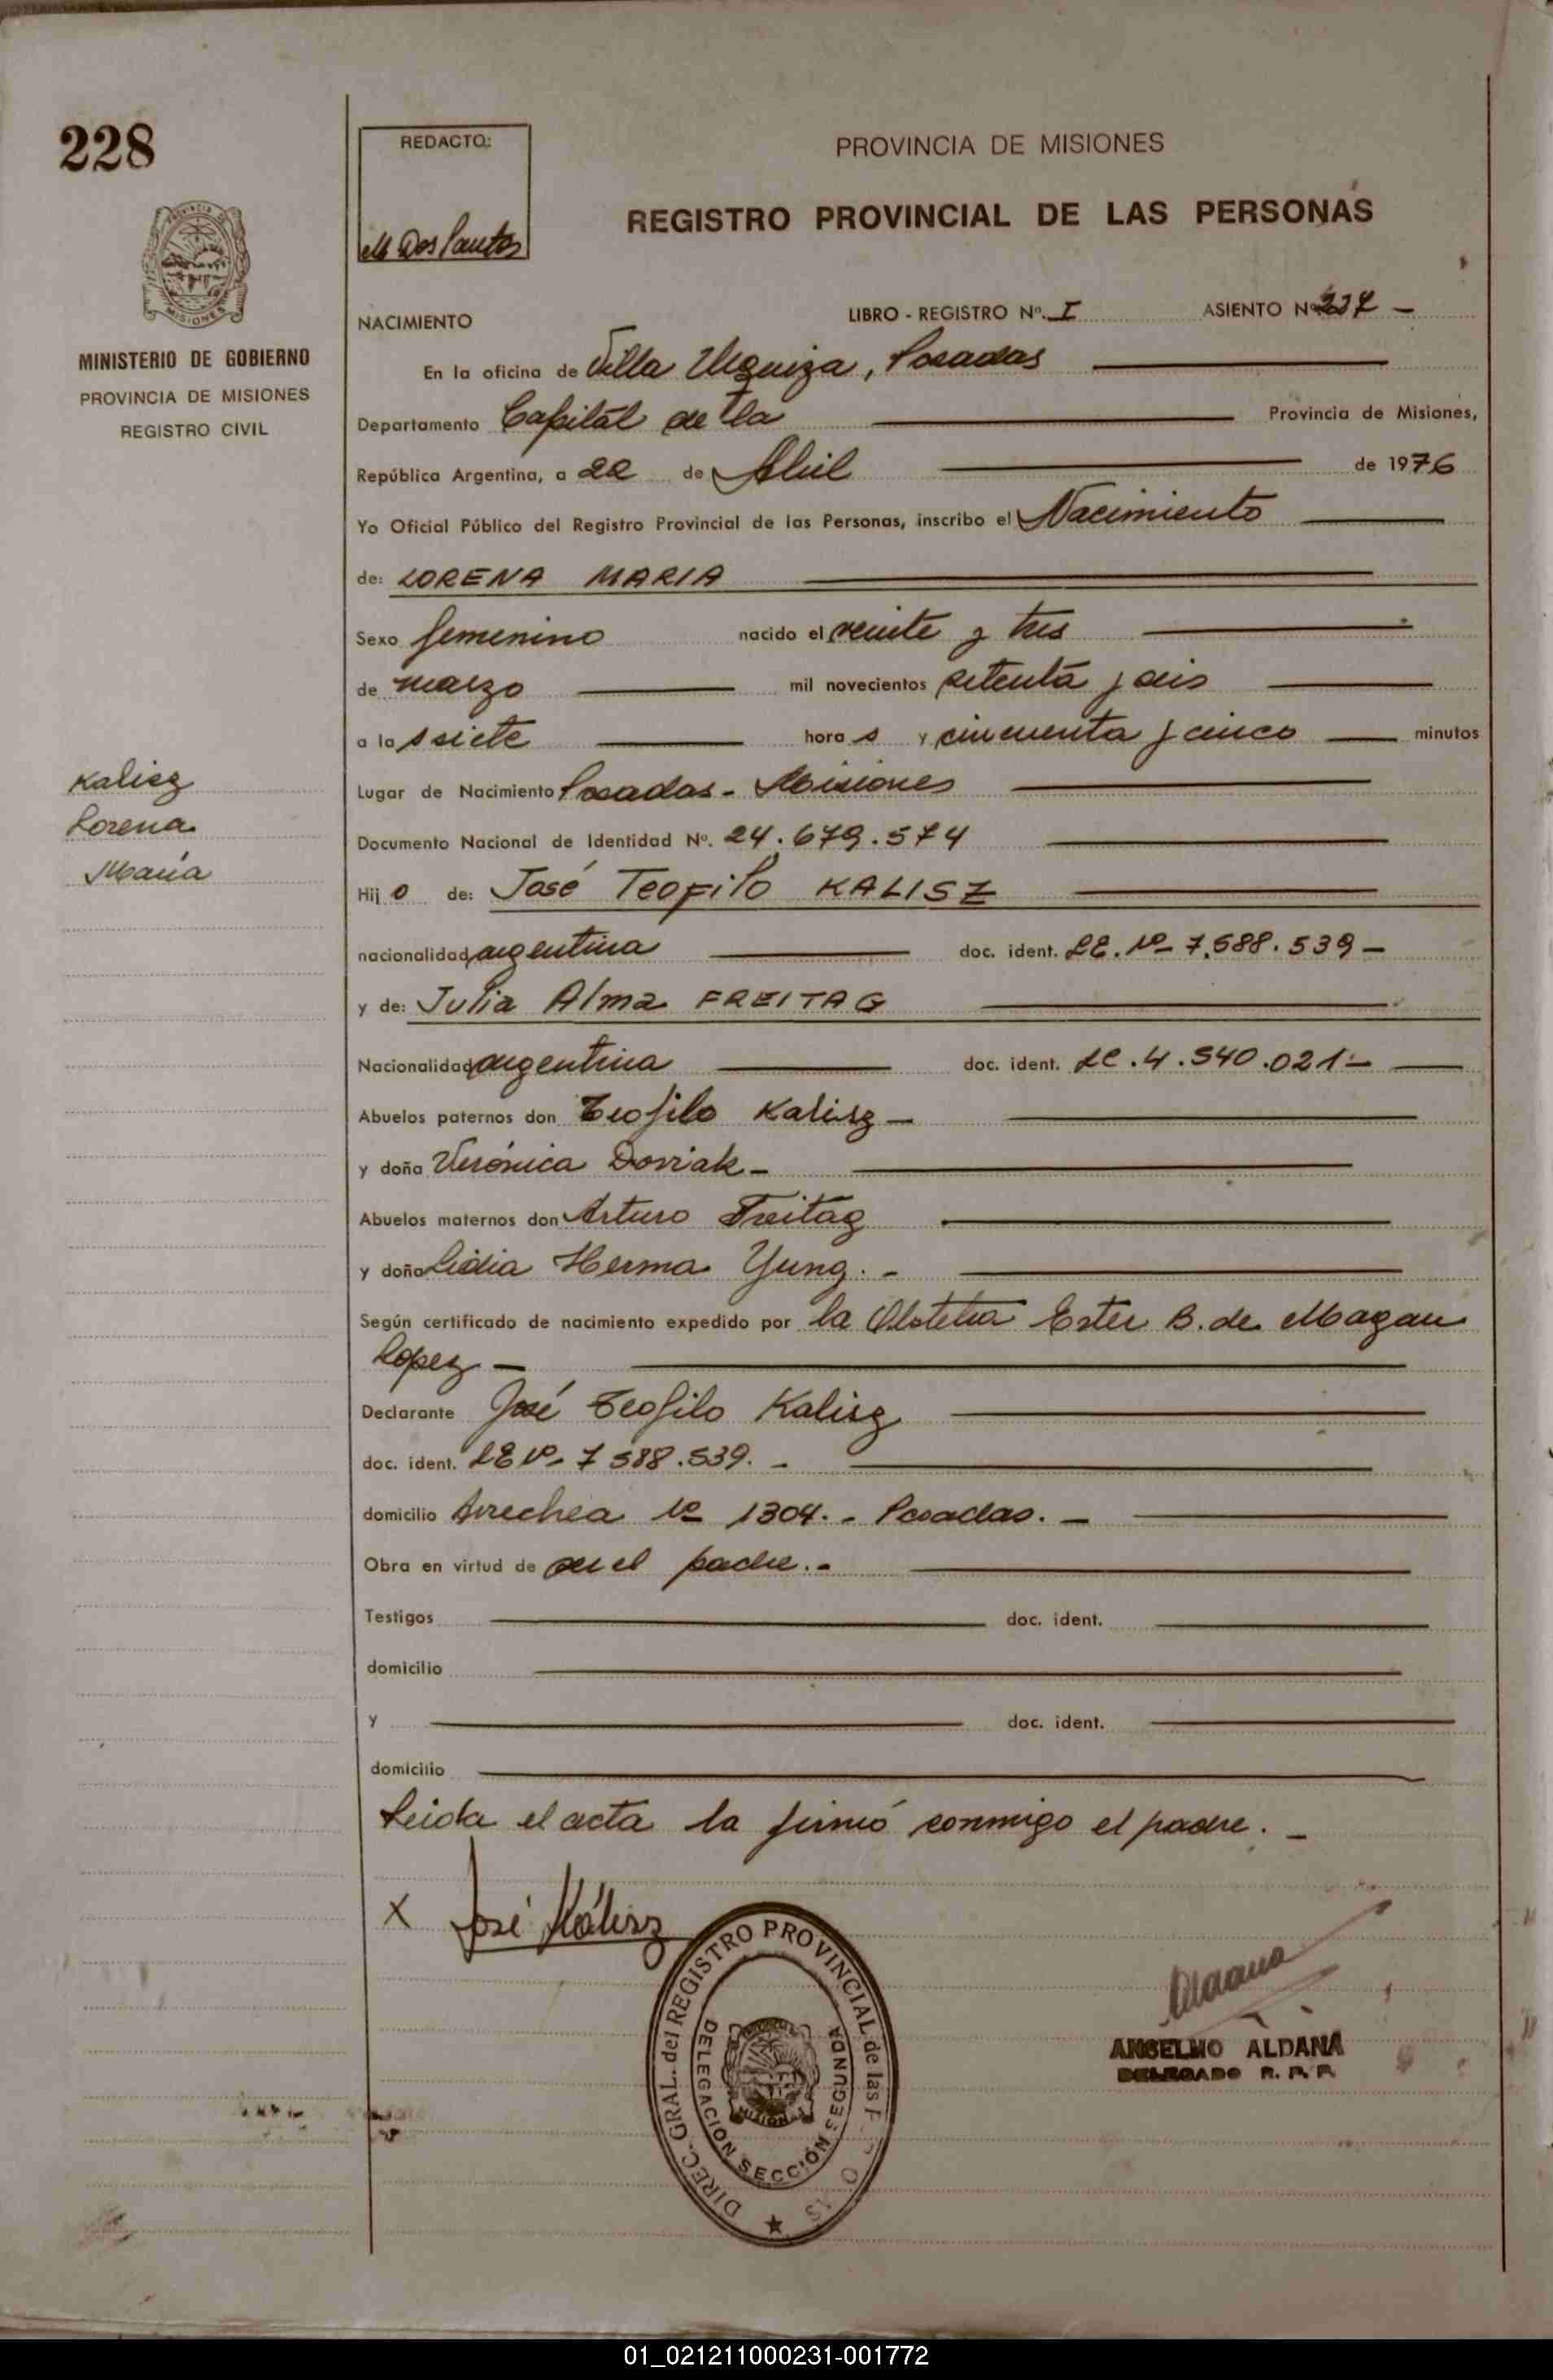 228
REDACTO:
M Dos Santos
PROVINCIA DE MISIONES
REGISTRO PROVINCIAL DE LAS PERSONAS
PROVINCIA DE
MISIONES
MINISTERIO DE GOBIERNO
PROVINCIA DE MISIONES
REGISTRO CIVIL
NACIMIENTO LIBRO - REGISTRO Nº. I ASIENTO Nº 227 -
En la oficina de Villa Urquiza, Posadas
Departamento Capital de la Provincia de Misiones,
República Argentina, a 22 de Abril de 1976
Yo Oficial Público del Registro Provincial de las Personas, inscribo el Nacimiento
de: LORENA MARIA
Sexo femenino nacido el veinte y tres
de marzo mil novecientos setenta y seis
a las siete horas y cincuenta y cinco minutos
Kalisz
Lorena
María
Lugar de Nacimiento Posadas - Misiones
Documento Nacional de Identidad Nº. 24.679.574
Hijo de: José Teofilo KALISZ
nacionalidad argentina doc. ident. LE. Nº 7.588.539 -
y de: Julia Alma FREITAG
Nacionalidad argentina doc. ident. LC. 4.540.021 -
Abuelos paternos don Teofilo Kalisz -
y doña Verónica Dorriak -
Abuelos maternos don Arturo Freitag
y doña Lidia Herma Yung. -
Según certificado de nacimiento expedido por la Obstetra Ester B. de Magan
Lopez -
Declarante José Teofilo Kalisz
doc. ident. LE Nº 7 588.539. -
domicilio Arrechea Nº 1304. - Posadas. -
Obra en virtud de ser el padre. -
Testigos doc. ident.
domicilio
y doc. ident.
domicilio
Leida el acta la firmó conmigo el padre. -
X José Kálisz
DIREC. GRAL. del REGISTRO PROVINCIAL de las
DELEGACION SECCIÓN SEGUNDA
MISIONES
Aldana
ANSELMO ALDANA
DELEGADO R. P. P.
01_021211000231-001772